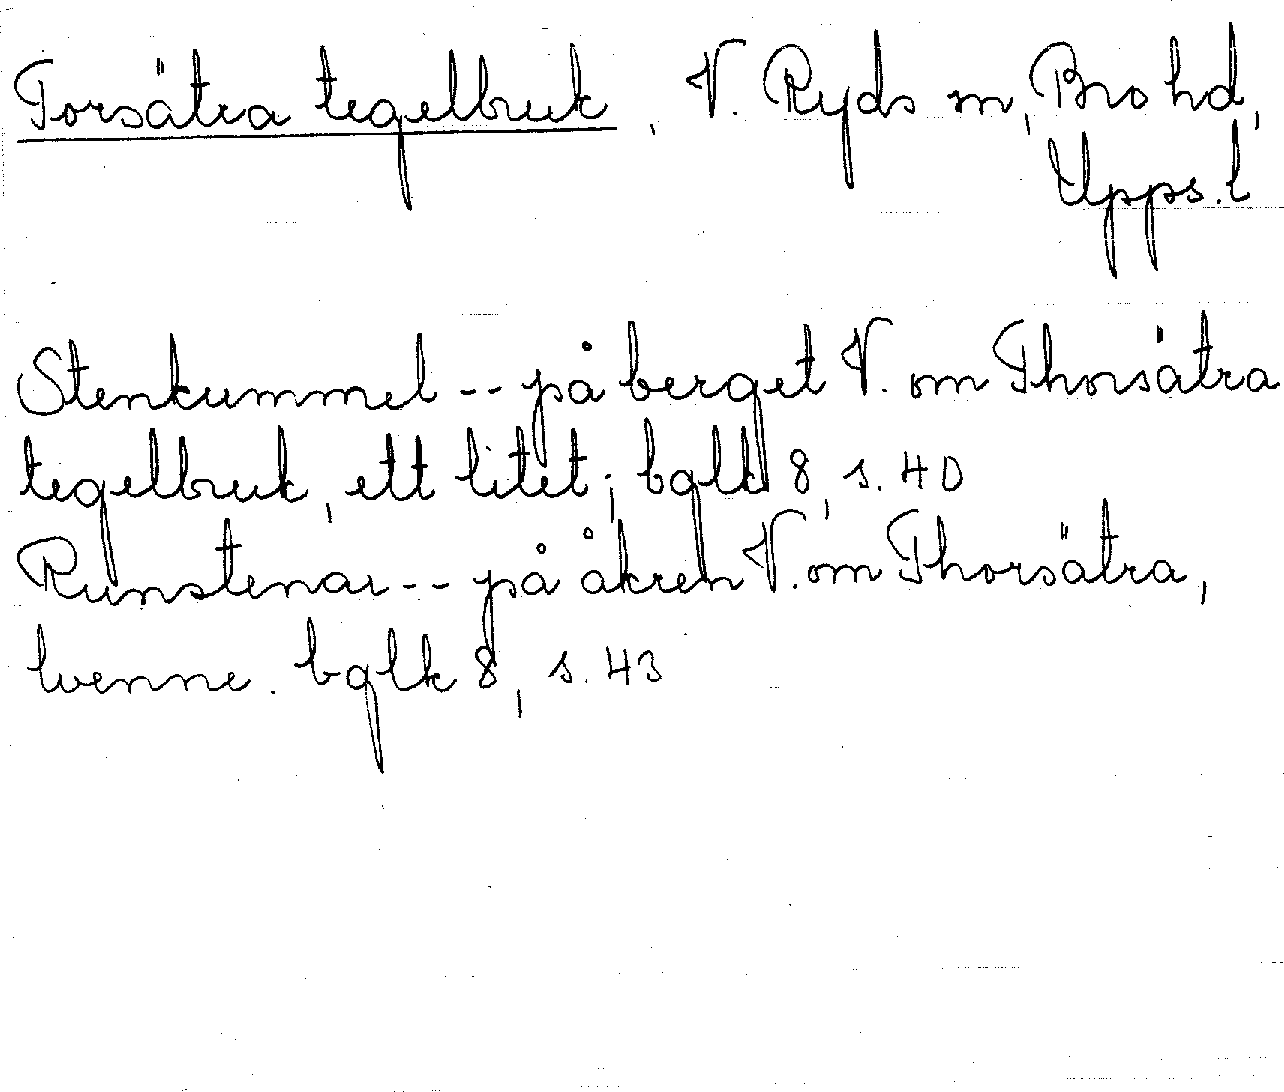 Torsätra tegelbruk, V. Ryds sn, Bro hd,
Upps. l
Stenkummel -- på berget V. om Thorsätra
tegelbruk, ett litet; bglk 8, s. 40
Runstenar -- på åkren V. om Thorsätra,
tvenne. bglk 8, s. 43